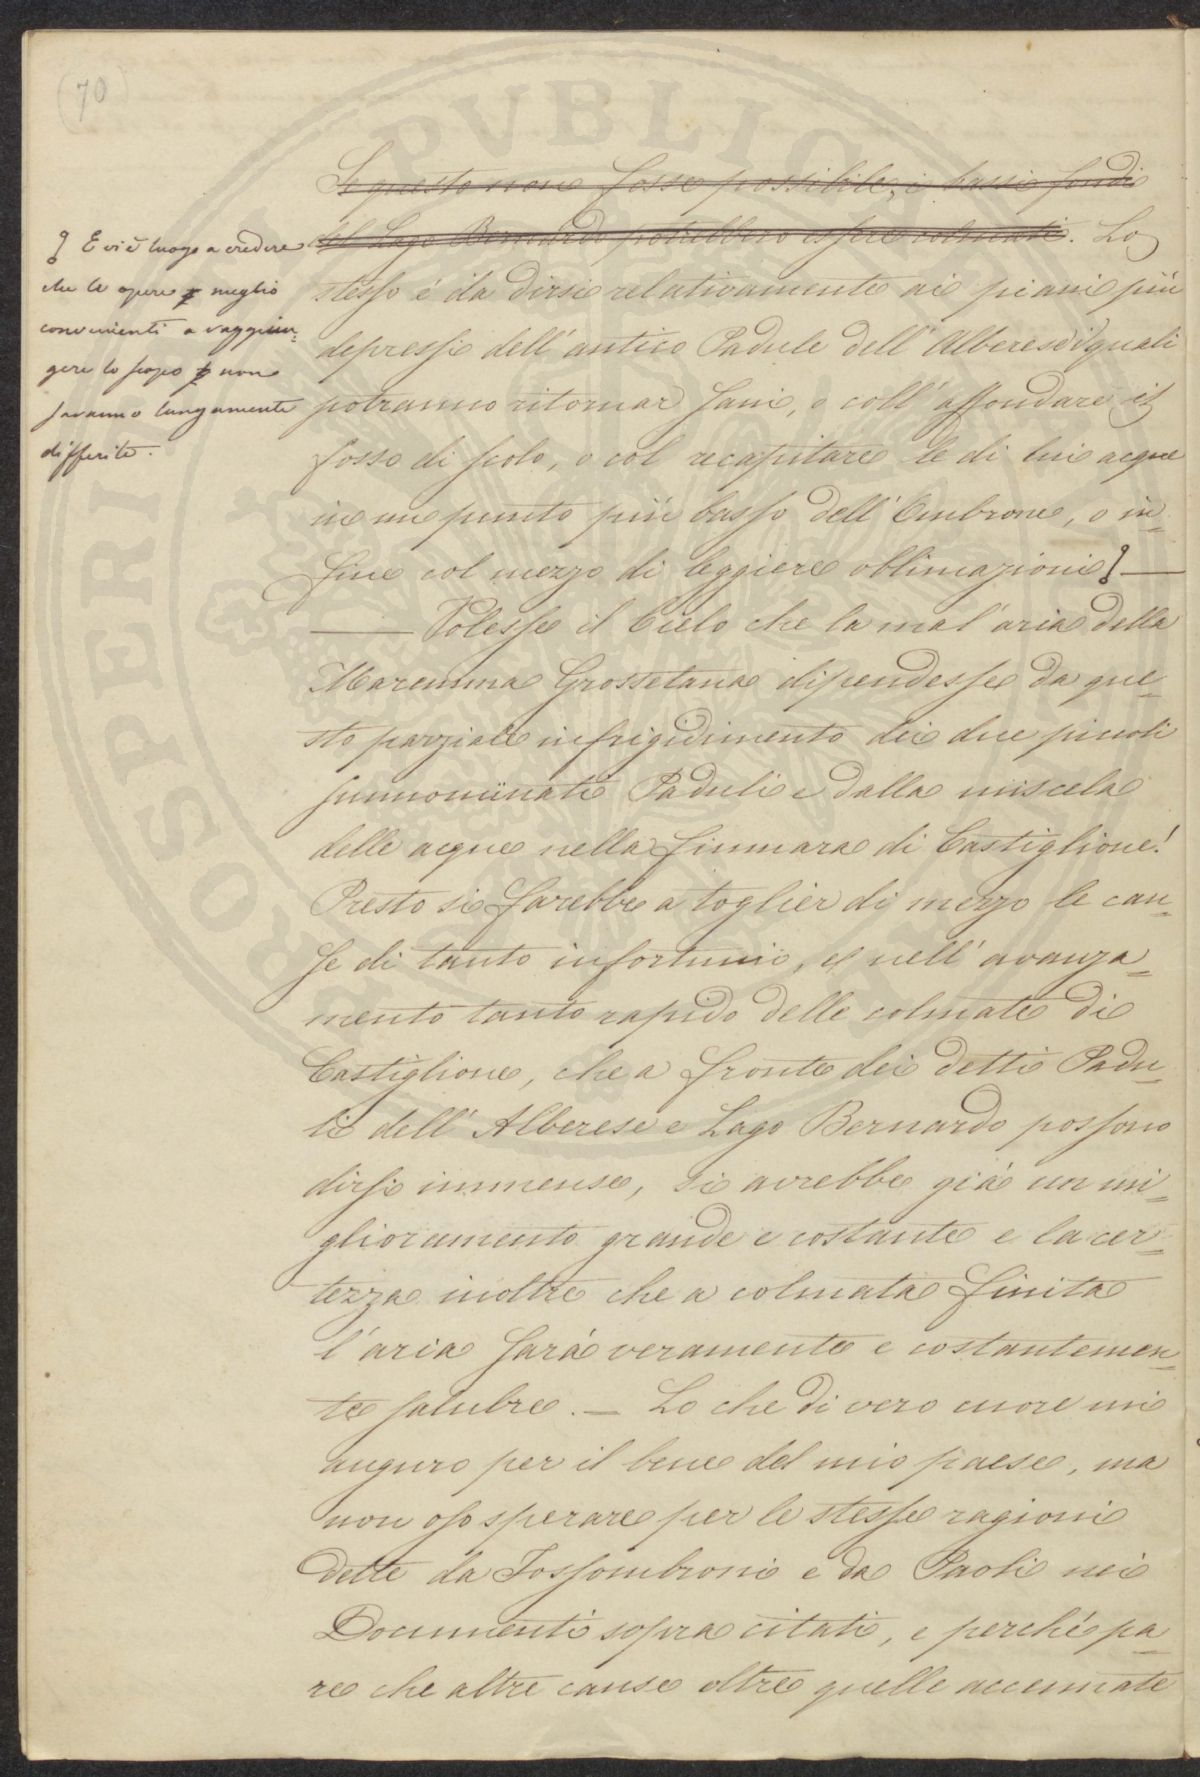 (70)
Se questo non fosse possibile, i bassi fondi
del Lago Bernardo potrebbero essere colmati. Lo
stesso é da dirsi relativamente ai piani più
depressi dell' antico Padule dell' Alberese i quali
potranno ritornar sani, o coll' affondare il
fosso di scolo, o col recapitare le di lui acque
in un punto più basso dell' Ombrone, o in=
fine col mezzo di leggiere oblimazioni
E vi è luogo a credere
che le opere meglio
convenienti a raggiun=
gere lo scopo non
saranno lungamente
differite.
Volesse il Cielo che la mal' aria della
Maremma Grossetana dipendesse da que=
sto parziale infrigidimento dei due piccoli
sunnominati Paduli e dalla miscela
delle acque nella fiumara di Castiglione!
Presto si farebbe a toglier di mezzo le cau=
se di tanto infortunio, e nell' avanza=
mento tanto rapido delle colmate di
Castiglione, che a fronte dei detti Padu=
li dell' Alberese e Lago Bernardo possono
dirsi immense, si avrebbe già un mi=
glioramento grande e costante e la cer=
tezza inoltre che a colmata finita
l' aria sarà veramente e costantemen=
te salubre. — Lo che di vero cuore mi
auguro per il bene del mio paese, ma
non oso sperare per le stesse ragioni
dette da Fossombroni e da Paoli nei
Documenti sopra citati, e perché pa=
re che altre cause oltre quelle accennate
PROSPERITATI PVBLICAE